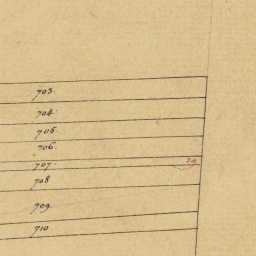 703.
704.
705.
706.
707.
708
709.
710.